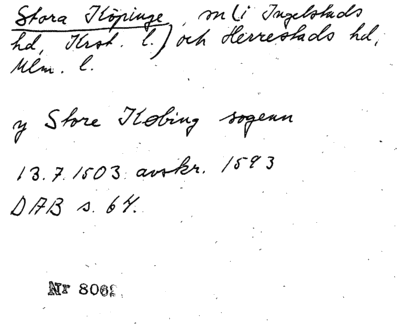 Stora Köpinge, sn (i Ingelstads
hd, Krst. l.) och Herrestads hd,
Mlm. l.
y Store Kobing sogenn
13.7.1503 avskr. 1593
DAB s. 64.
Nr 806